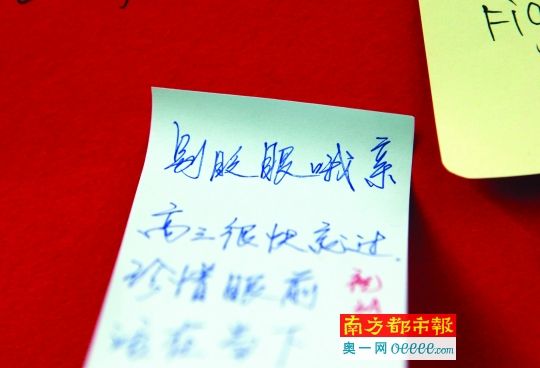 Fig
别眨眼哦亲
高三很快就过.
珍惜眼前
活在当下
祝
南方都市報
奥一网oeeee.com